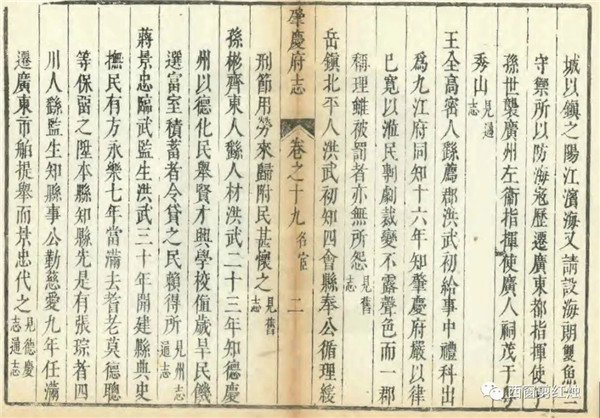 城以鎮之陽江濱海又請設海朗雙魚二
守禦所以防海寇歷遷廣東都指揮使
孫世襲廣州左衛指揮使廣人祠茂于粵
秀山見通志
王全高密人繇薦郡洪武初給事中禮科出
爲九江府同知十六年知肇慶府嚴以律
已寛以涖民剸劇裁變不露聲色而一郡
稱理雖被罰者亦無所怨見舊志
岳鎮北平人洪武初知四會縣奉公循理綏
肇慶府志 卷之十九 名宦 二
刑節用勞來歸附民甚懷之見舊志
孫彬齊東人繇人材洪武二十三年知德慶
州以德化民舉賢才興學校值歲旱民饑
選富室積蓄者令貸之民賴得所見州志通志
蔣景忠臨武監生洪武三十年開建縣典史
撫民有方永樂七年當滿去耆老莫德聰
等保留之陞本縣知縣先是有張琮者四
川人繇監生知縣事公勤慈愛九年任滿
遷廣東市舶提舉而景忠代之見德慶志通志
西窗剪红烛